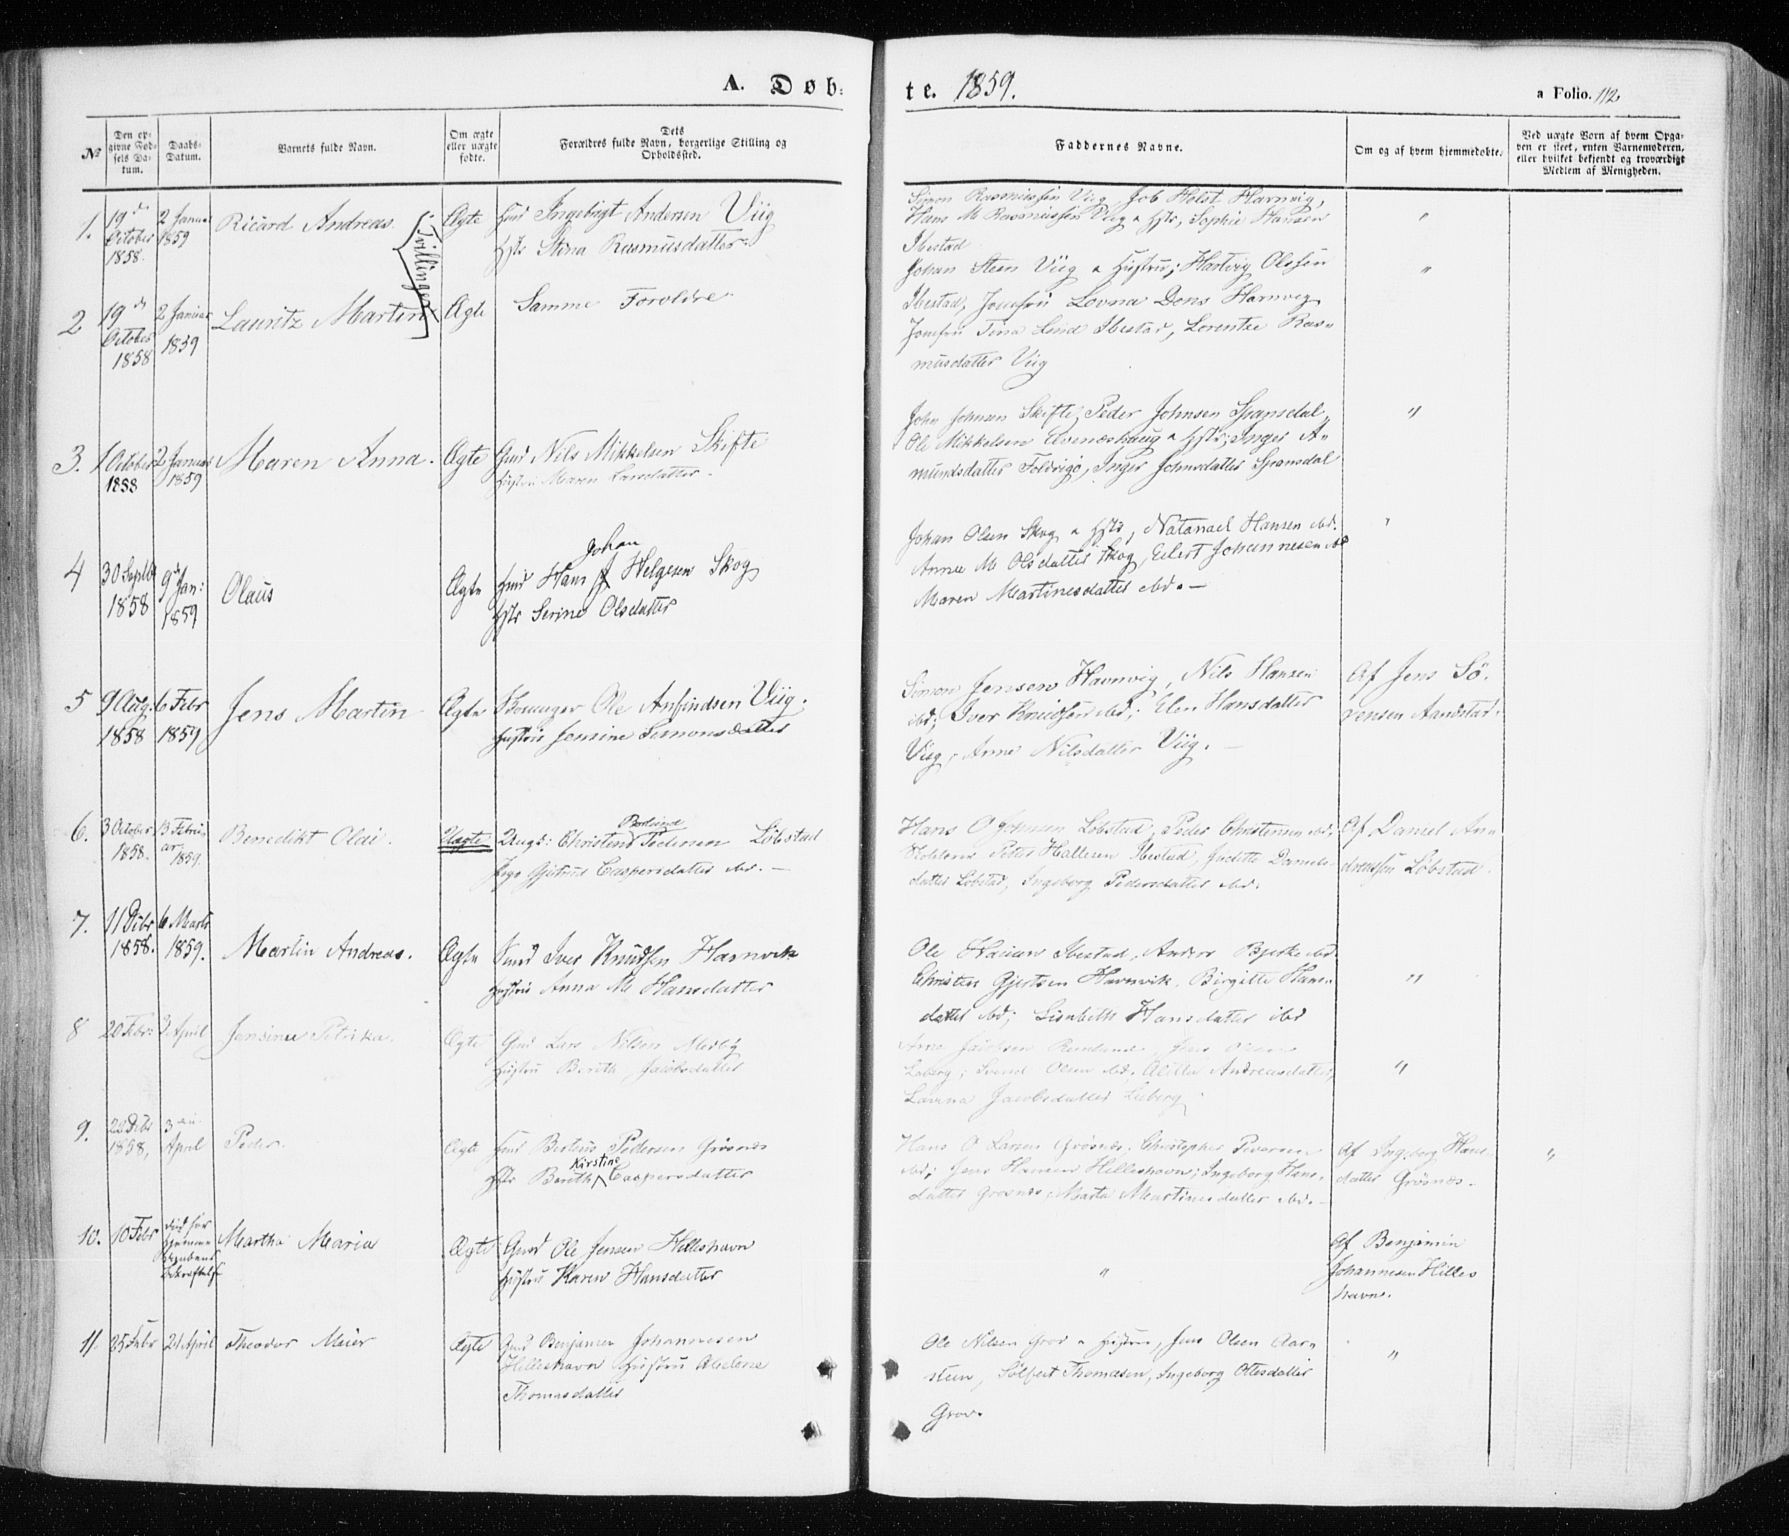 A. Døb-
te. 1859.
a Folio. 112
No
Den op-
givne Fød-
sels Da-
tum.
Daabs-
Datum.
Barnets fulde Navn.
Om ægte
eller uægte
fødte.
Dets
Forældres fulde Navn, borgerlige Stilling og
Opholdssted.
Faddernes Navne.
Om og af hvem hjemmedøbte.
Ved uægte Børn af hvem Opga-
ven er skeet, enten Barnemoderen,
eller hvilket bekjendt og troværdigt
Medlem af Menigheden.
1.
19de
October
1858.
2 Januar
1859
Ricard Andreas
Tvillinger
Ægte
Gmd Ingebrigt Andersen Viig
Hstr Stina Rasmusdatter
Simon Rasmussen Viig, Job Holst Havnvig,
Hans M Rasmussen Viig & Hstr, Sophie Hansen
Ibestad
"
2
19de
October
1858
2 Januar
1859
Lauritz Martin
Ægte
Samme Forældre
Johan Steen Viig & Hustru, Hartvig Olsen
Ibestad, Jomfru Lovna Dons Havnvig
Jomfru Tina Lind Ibestad, Lorentse Ras-
musdatter Viig
"
3.
1 October
1858
2 Januar
1859
Maren Anna.
Ægte
Gmd Nils Mikkelsen Skifte
Hustru Maren Larsdatter.
John Johnsen Skifte, Peder Johnsen Spansdal,
Ole Mikkelsen & Hstr, Inger A-
mundsdatter Foldvigo, Inger Johnsdatter Spansdal
"
4
30 Septbr
1858
9de Jan:
1859
Olaus
Ægte
Johan
Gmd Hans Helgesen Skog
Hstr Serine Olsdatter
Johan Olsen Skog & Hstr, Natanael Hansen ibd.
Anne M Olsdatter Skog, Eilert Johannesen ibd
Maren Martinesdatter ibd. —
"
5
9 Aug:
1858
6 Febr
1859
Jens Martin
Ægte
Ole Ansindsen Viig.
Hustru Jensine Simonsdatter
Simon Jensen Havnvig, Nils Hansen
ibd, Iver Knudsen ibd, Elen Hansdatter
Viig, Anne Nilsdatter Viig. —
Af Jens Sø-
rensen Aandstad.
6.
3 October
1858.
13 Febru-
ar
1859.
Benedikt Olai.
Uægte
Ungk: Christen Pedersen Løbstad
Pige Gjertrud Caspersdatter ibd. —
Hans O Johnsen Løbstad, Peder Christensen ibd,
Peter Hallesen Ibestad, Daniels-
datter Løbstad, Ingeborg Pedersdatter ibd.
Af Daniel An-
dreassen Løbstad.
7.
11 Debr
1858.
6 Marts
1859.
Martin Andreas.
Ægte
Iver Knudsen Havnvik
Hustru Anna M Hansdatter
Ole Ibestad, Andor Bjerke ibd
Christen Gjertsen Havnvik, Birgitte Hans-
datter ibd, Lisabeth Hansdatter ibd
"
8
20 Febr:
3 April
Jensine Petrika.
Ægte
Gmd Lars Nilsen Medby
Hustru Berith Jacobsdatter
Arne Jacobsen, Jens Olsen
Svend Olsen ibd, Andreasdatter,
Lavina Jacobsdatter
"
9.
Debr
1858,
3die
April
Peder.
Ægte
Gmd Pedersen Grøsnes
Kirstine
Hstr Berith Caspersdatter
Hans O Larsen Grøsnes, Christopher Iversen
ibd, Jens Hansen Helleshavn, Ingeborg Hans-
datter Grøsnes, Marta Martinesdatter ibd. —
Af Ingeborg Hans
datter Grøsnes.
"
10.
10 Febr
død før
Hjemme
daabens
bekræftelse
Martha Maria
Ægte
Gmd Ole Jensen Helleshavn
Hustru Karen Hansdatter
"
Af Benjamin
Johannesen Helles
havn.
11.
25 Febr
21 April
Theodor Meier
Ægte
Gmd Benjamin Johannesen
Helleshavn Hustru Abelone
Thomasdatter
Ole Nilsen Grov & Hustru, Jens Olsen Aar-
steen, Solfert Thomasen, Ingeborg Ottesdatter
Grov.
"